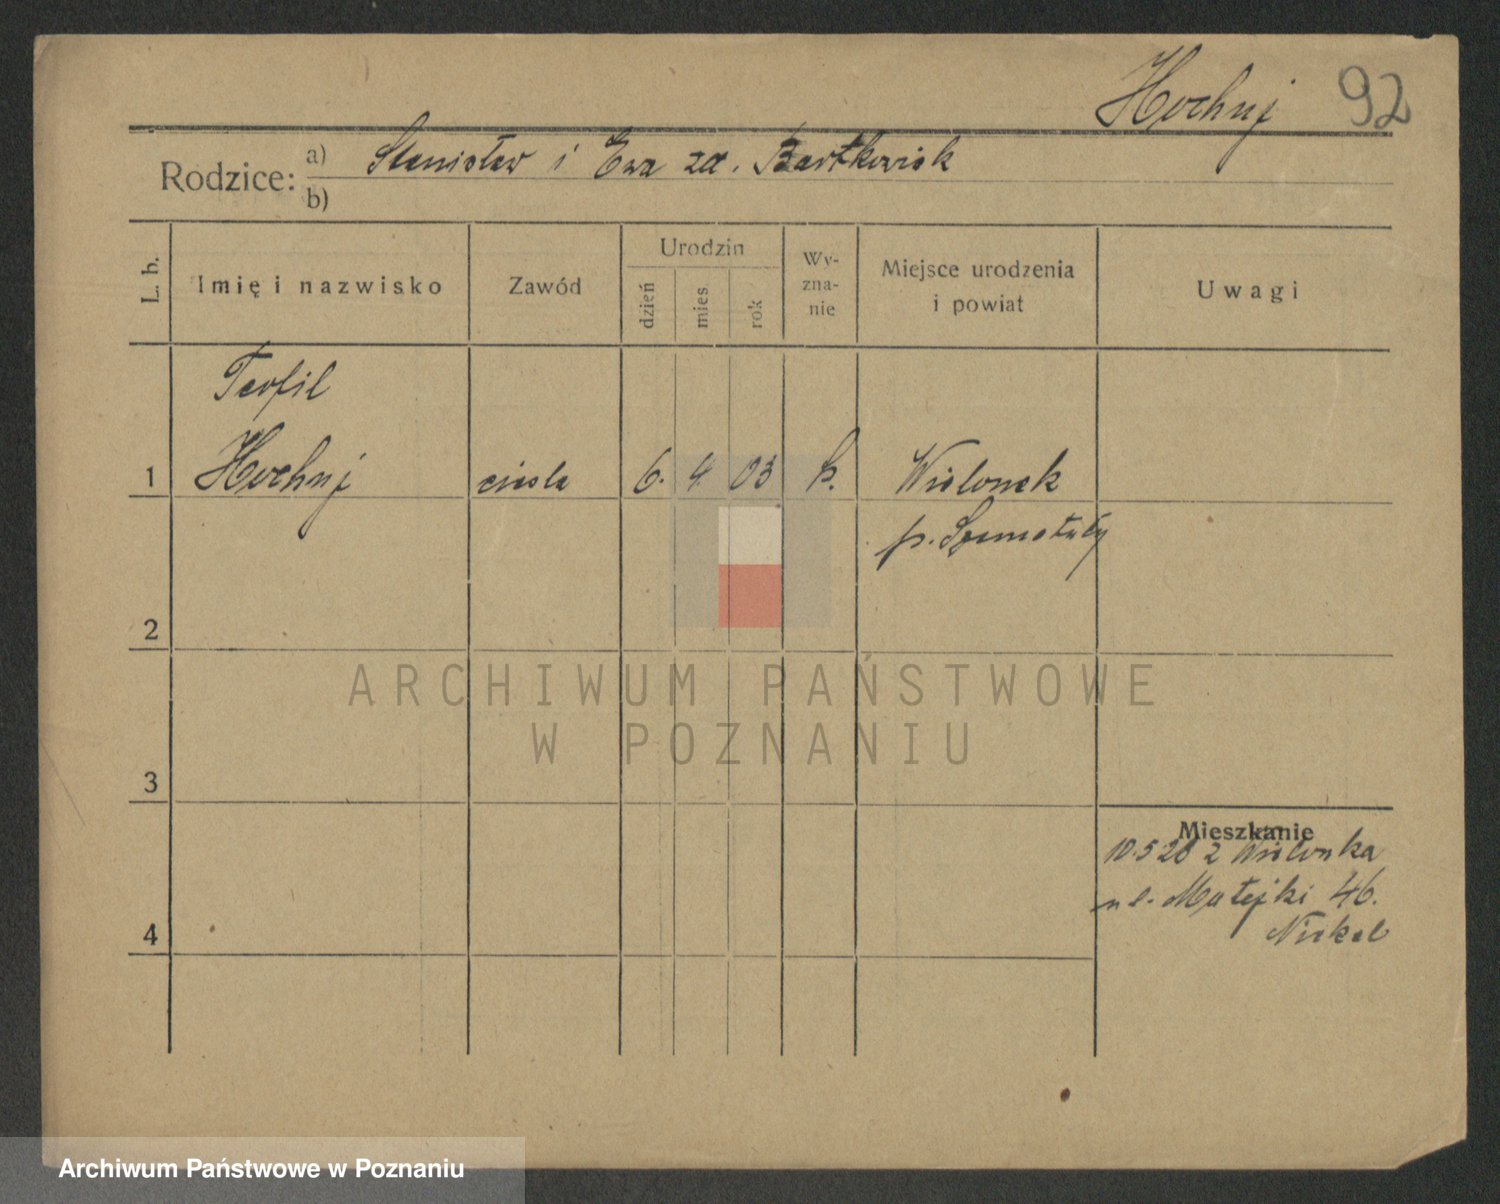 Hochuj 92
Rodzice: a) Stanisław i Ewa zd. Bartkowiak
b)
L. b. Imię i nazwisko Zawód Urodzin dzień mies. rok Wy-zna-nie Miejsce urodzenia i powiat Uwagi
Teofil
1 Hochuj cieśla 6. 4. 03 k. Wielonek
p. Szamotuły
2
ARCHIWUM PAŃSTWOWE
W POZNANIU
3
Mieszkanie
10.5 28 z Wielonka
ul. Matejki 46.
Nickel
4
Archiwum Państwowe w Poznaniu